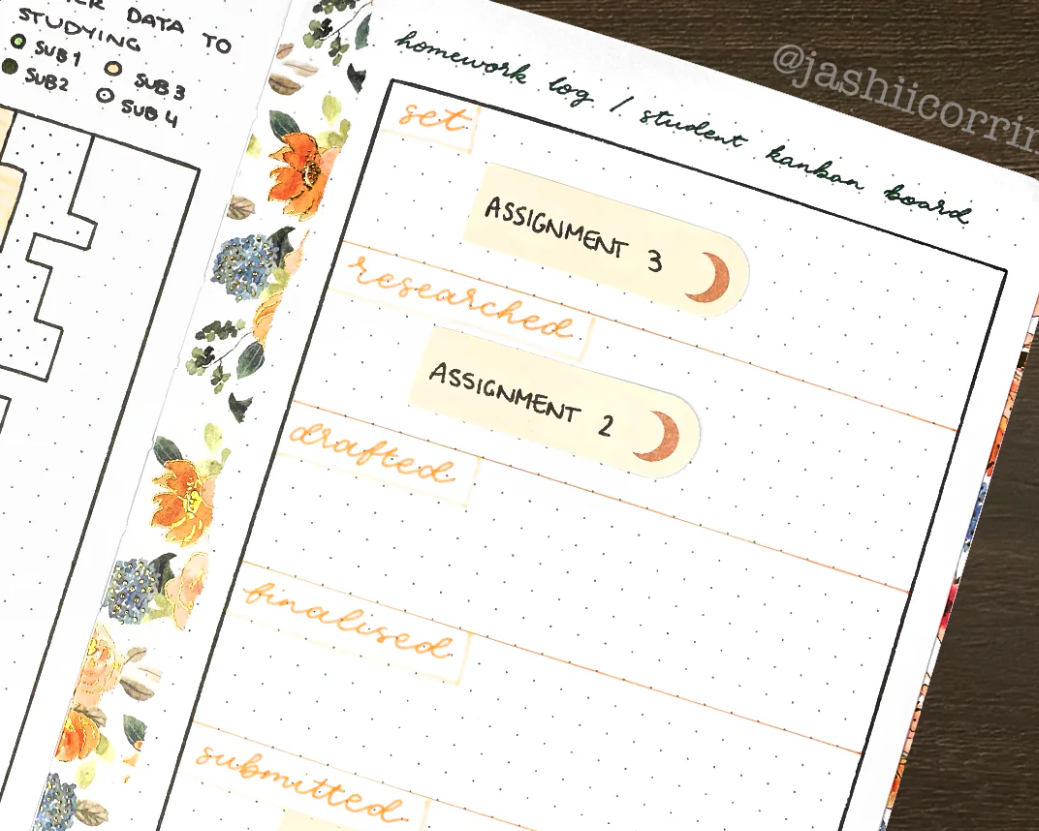 DATA TO
STUDYING
SUB 1
SUB 3
SUB 2
SUB 4
homework log / student kanban board
set
ASSIGNMENT 3
researched
ASSIGNMENT 2
drafted
finalised
submitted